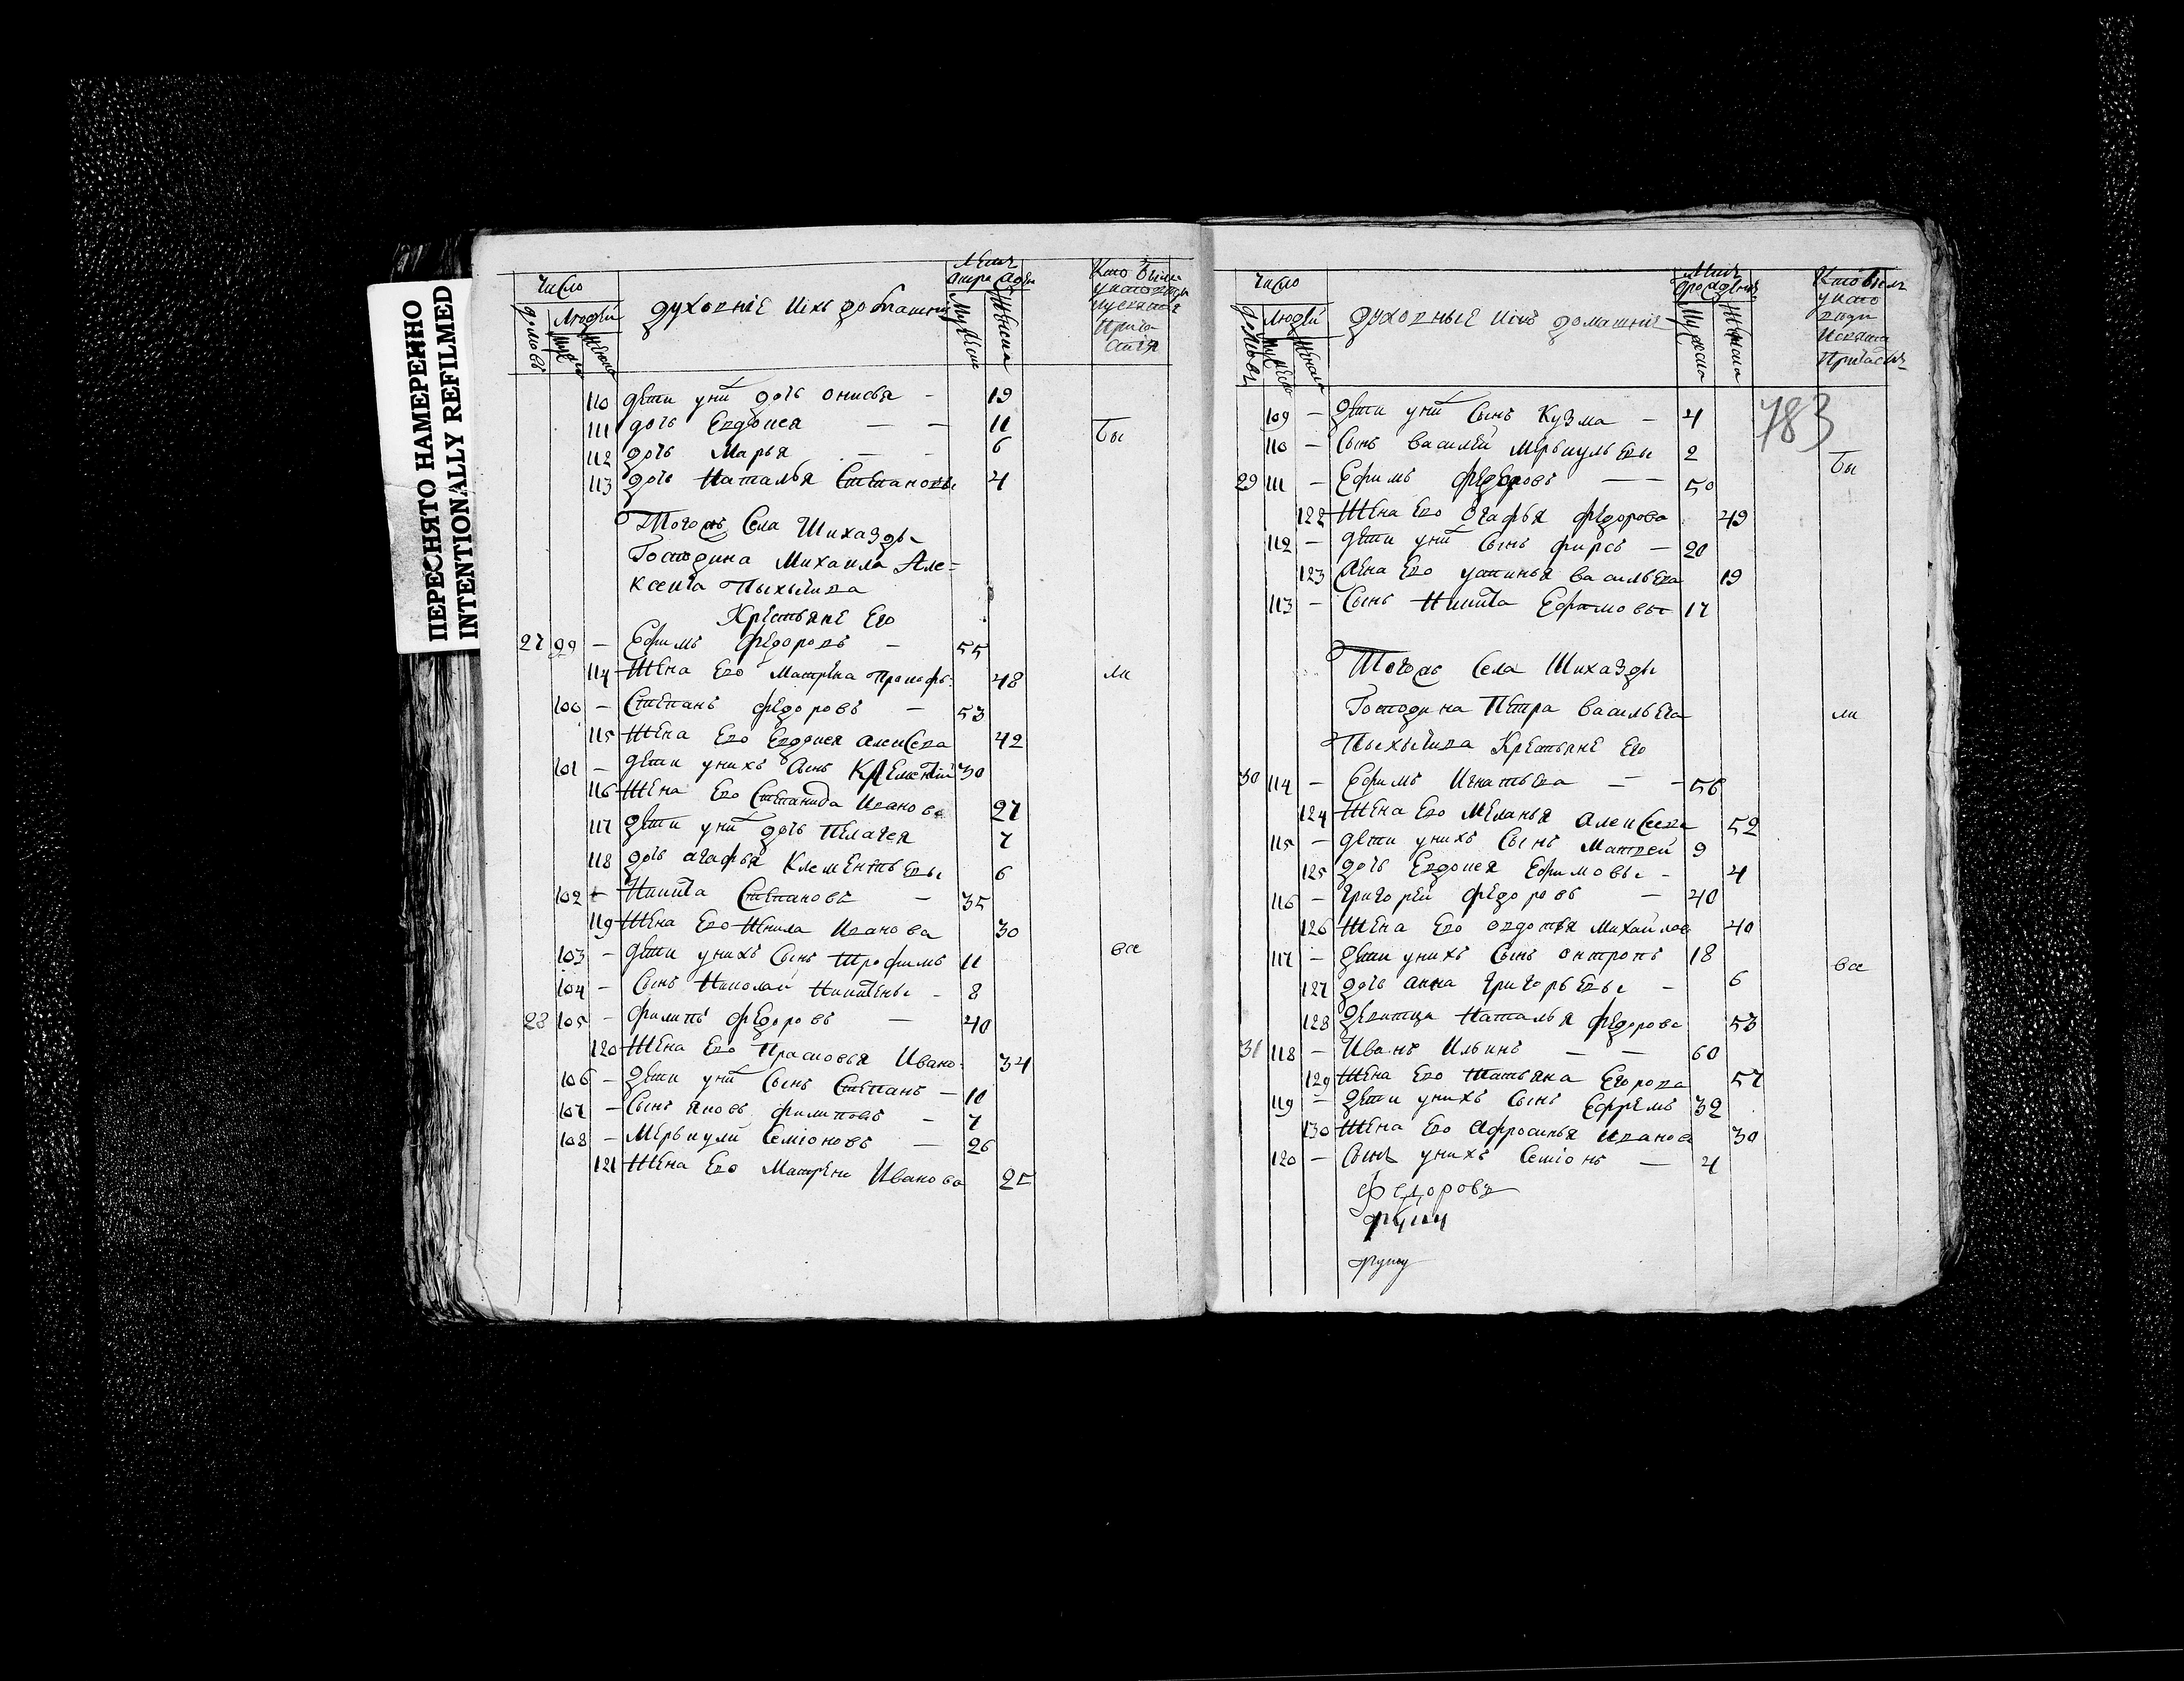 ПЕРЕСНЯТО НАМЕРЕННО
INTENTIONALLY REFILMED
Число
домовъ
Людей
духовніе ихъ домашніе
110 дѣти у них дочь Онисья - 19
111 дочь Евдокея - - 11
Бы
112 дочь Марья - - 6
113 дочь Наталья Степановы 4
Тогожъ Села Шихазды
Господина Михаила Але=
ксеича Пыхычева
Крестьяне Его
27 99 - Ефимъ Федоровъ - 55
114 Жена Его Матрена Прокофь: 48
ли
100 - Степанъ Федоровъ - 53
115 Жена Его Евдокея Алексева 42
101 - дети унихъ Сынъ Клементей 30
116 Жена Его Степанида Иванова 27
117 дети уних дочь Пелагея 7
118 дочь агафья Клементьевы 6
102 - Никита Степановъ - 35
119 Жена Его Ненила Иванова 30
103 - дети унихъ Сынъ Трофимъ 11
все
104 - Сынъ Николай Никитены - 8
28 105 - Филипъ Федоровъ - 40
120 Жена Его Прасковья Ивано: 34
106 - дети уних Сынъ Степанъ - 10
107 - Сынъ Яковъ Филиповъ - 7
108 - Меркулй Семіоновъ - 26
121 Жена Его Матрена Иванова 25
Число
Людей
духовные ихъ домашніе
783
109 - дети уних Сынъ Кузма - 4
110 - Сынъ Василей Меркульевы 2
Бы
29 111 - Ефимъ Федоровъ - - 50
122 Жена Его Огафья Федорова 49
112 - дети уних Сынъ Фирсъ - 20
123 Жена Его устинья Васильева 19
113 - Сынъ Никита Ефимовы 17
Тогожъ Села Шихазды
Господина Петра Васильева
ли
Пыхычева Крестьяне Его
30 114 - Ефимъ Игнатьева - - 56
124 Жена Его Меланья Алексеева 52
115 - дети унихъ Сынъ Матвей 9
125 дочь Евдокея Ефимовы - 4
116 - Григорей Федоровъ - 40
126 Жена Его овдотья Михайлов 40
117 - дети унихъ Сынъ онтропъ 18
все
127 дочь анна Григорьевы - 6
128 девитца Наталья Федорова 53
31 118 - Иванъ Ильинъ - - 60
129 Жена Его Татьяна Егорова 57
119 - дети унихъ Сынъ Ефремъ 32
130 Жена Его Афросинья Иванов 30
120 - Сынъ унихъ Семіонъ - 4
Федоровъ